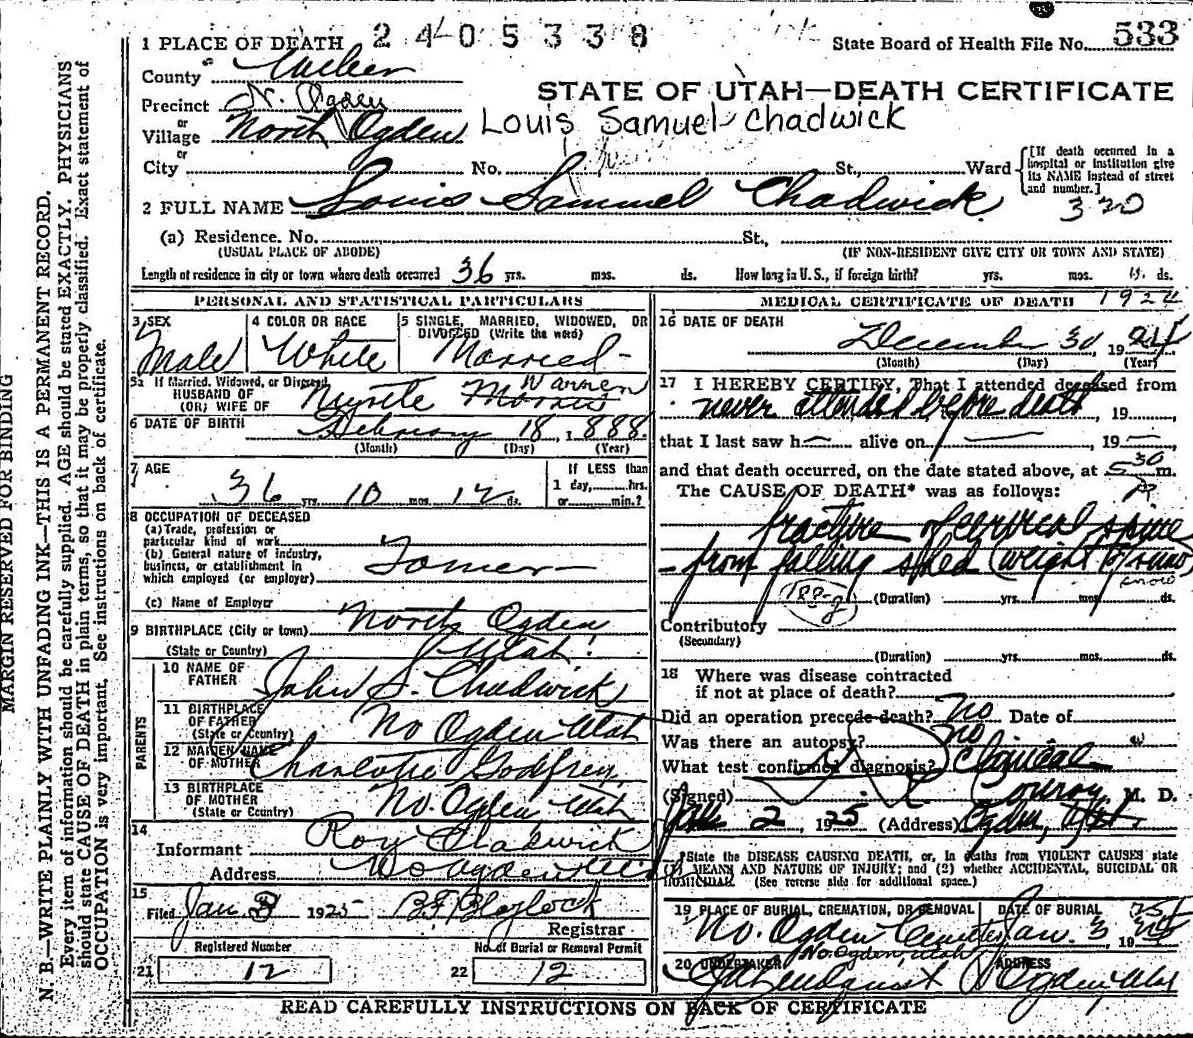 2405338
State Board of Health File No. 533
1 PLACE OF DEATH
County Weber
STATE OF UTAH—DEATH CERTIFICATE
Precinct N. Ogden
or
Village North Ogden
Louis Samuel Chadwick
or
City No. St., Ward
[If death occurred in a
hospital or institution give
its NAME instead of street
and number.]
2 FULL NAME Louis Samuel Chadwick
320
(a) Residence. No. St.,
(USUAL PLACE OF ABODE) (IF NON-RESIDENT GIVE CITY OR TOWN AND STATE)
Length of residence in city or town where death occurred 36 yrs. mos. ds. How long in U. S., if foreign birth? yrs. mos. ds.
PERSONAL AND STATISTICAL PARTICULARS
3 SEX
Male
4 COLOR OR RACE
White
5 SINGLE, MARRIED, WIDOWED, OR
DIVORCED (Write the word)
Married
5a If Married, Widowed, or Divorced
HUSBAND OF
(OR) WIFE OF Myrtle Morris
Warren
6 DATE OF BIRTH February 18, 1888
(Month) (Day) (Year)
7 AGE
36 yrs. 10 mos. 12 ds.
If LESS than
1 day, hrs.
or min.?
8 OCCUPATION OF DECEASED
(a) Trade, profession or
particular kind of work
(b) General nature of industry,
business, or establishment in
which employed (or employer)
(c) Name of Employer
9 BIRTHPLACE (City or town) North Ogden
(State or Country) Utah
PARENTS
10 NAME OF
FATHER John S. Chadwick
11 BIRTHPLACE
OF FATHER
(State or Country) No Ogden Utah
12 MAIDEN NAME
OF MOTHER Charlotte Godfrey
13 BIRTHPLACE
OF MOTHER
(State or Country) No. Ogden Utah
14
Informant Roy Chadwick
Address No Ogden Utah
15
Filed Jan 3 1925 Blaylock
Registrar
Registered Number No. of Burial or Removal Permit
21 12 22 12
MEDICAL CERTIFICATE OF DEATH 1924
16 DATE OF DEATH
December 30, 1924
(Month) (Day) (Year)
17 I HEREBY CERTIFY, That I attended deceased from
never attended before death, 19
that I last saw h alive on 19
and that death occurred, on the date stated above, at 5 30 m.
P
The CAUSE OF DEATH* was as follows:
fracture of cervical spine
from falling shed (weight of snow)
snow
188-g (Duration) yrs. mos. ds.
Contributory
(Secondary)
(Duration) yrs. mos. ds.
18 Where was disease contracted
if not at place of death?
Did an operation precede death? No Date of
Was there an autopsy? no
What test confirmed diagnosis? Clinical
(Signed) Conroy, M. D.
Jan 2, 1925 (Address) Ogden, Utah
*State the DISEASE CAUSING DEATH, or, in deaths from VIOLENT CAUSES state
(1) MEANS AND NATURE OF INJURY; and (2) whether ACCIDENTAL, SUICIDAL OR
HOMICIDAL. (See reverse side for additional space.)
19 PLACE OF BURIAL, CREMATION, OR REMOVAL DATE OF BURIAL
No. Ogden Cemetery Jan. 3 19
No. Ogden, Utah
20 UNDERTAKER ADDRESS
Ogden, Utah
READ CAREFULLY INSTRUCTIONS ON BACK OF CERTIFICATE
MARGIN RESERVED FOR BINDING
N. B.—WRITE PLAINLY WITH UNFADING INK—THIS IS A PERMANENT RECORD.
Every item of information should be carefully supplied. AGE should be stated EXACTLY. PHYSICIANS
should state CAUSE OF DEATH in plain terms, so that it may be properly classified. Exact statement of
OCCUPATION is very important. See instructions on back of certificate.